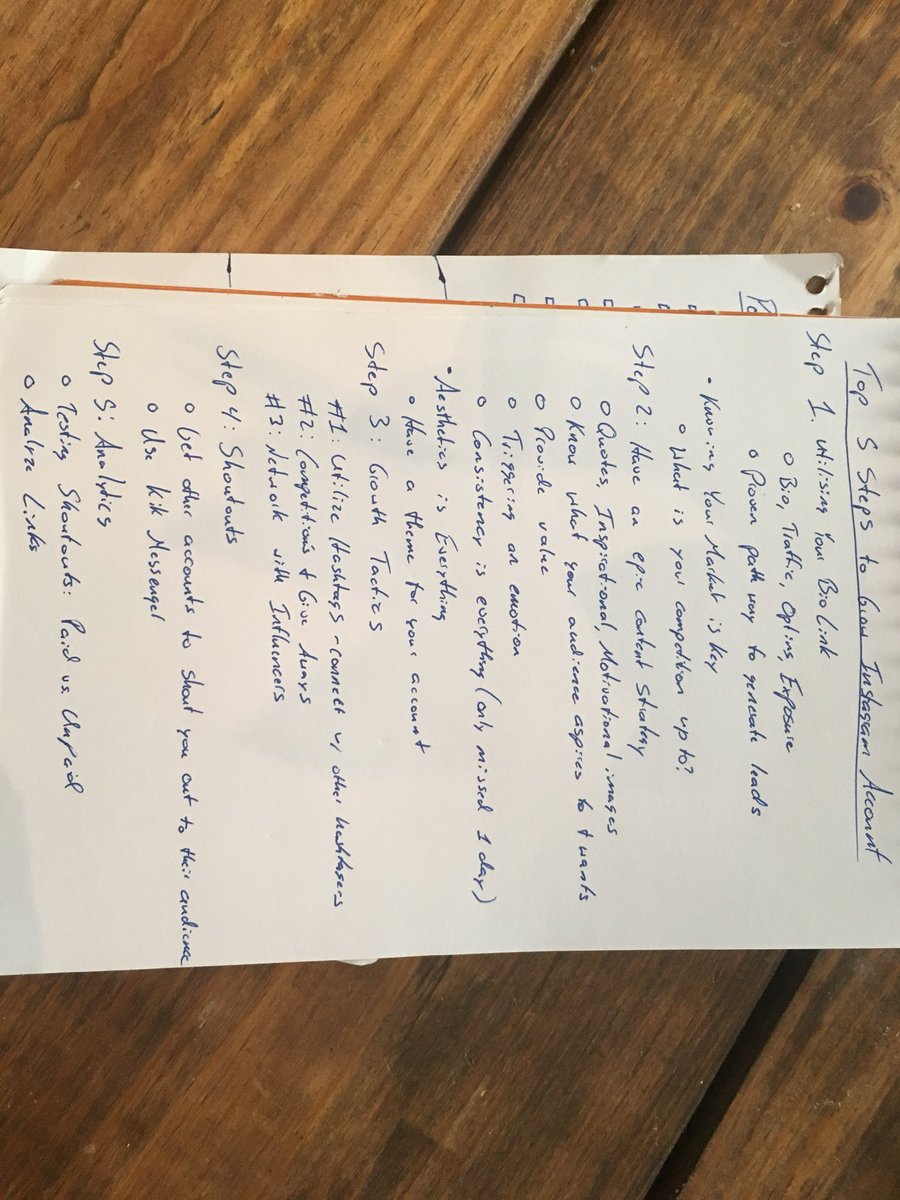 Top 5 Steps to Grow Instagram Account
Step 1. Utilising Your Bio Link
o Bio, Traffic, Optins, Exposure
o Proven path way to generate leads
• Knowing Your Market is key
o What is your competition up to?
Step 2: Have an epic content strategy
o Quotes, Inspirational, Motivational images
o Know what your audience aspires to + wants
o Provide value
o Triggering an emotion
o Consistency is everything (only missed 1 day)
• Aesthetics is Everything
o Have a theme for your account
Step 3: Growth Tactics
#1: Utilize Hashtags - connect w/ other hashtagers
#2: Competitions + Give Aways
#3: Network with Influencers
Step 4: Shoutouts
o Get other accounts to shout you out to their audience
o Use Kik Messenger
Step 5: Analytics
o Testing Shoutouts: Paid vs. Unpaid
o Analyze Links